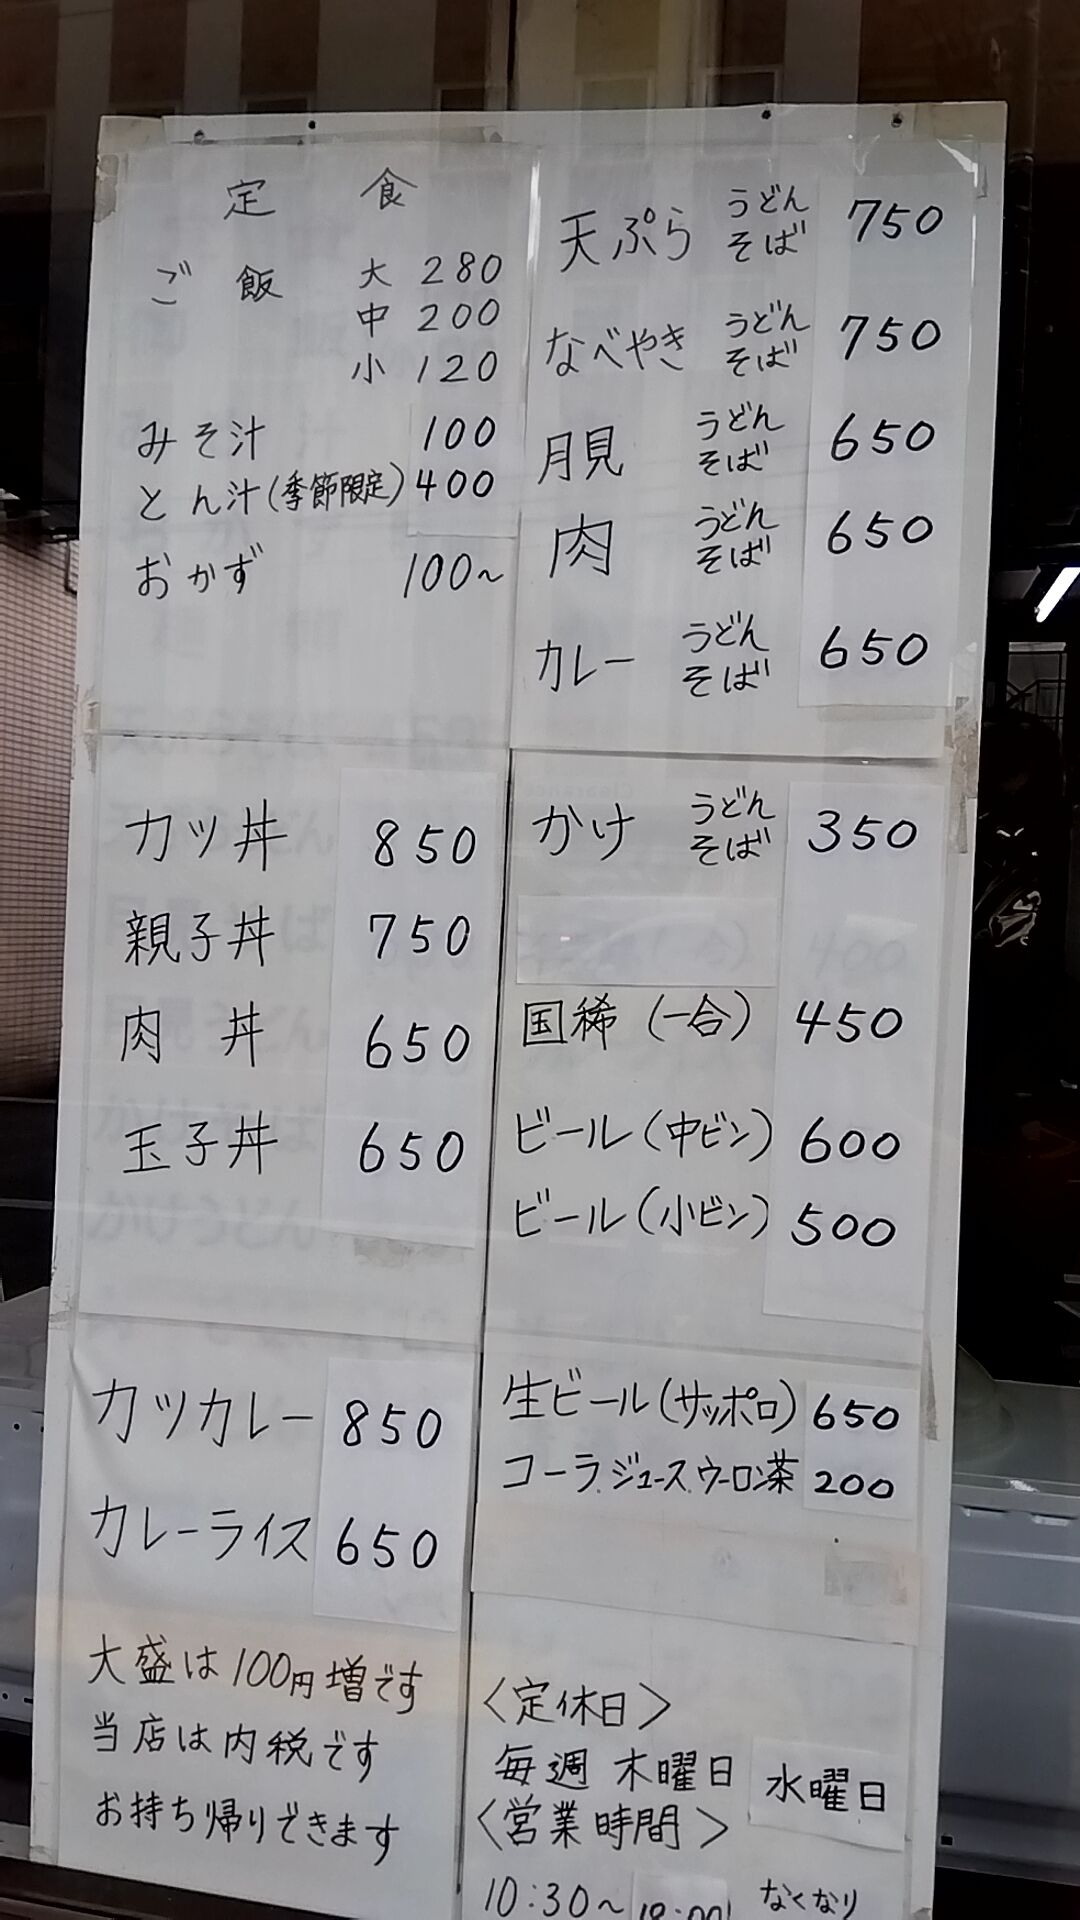 定 食
ご 飯 大 280
中 200
小 120
みそ汁 100
とん汁(季節限定) 400
おかず 100~
天ぷら うどん そば 750
なべやき うどん そば 750
月見 うどん そば 650
肉 うどん そば 650
カレー うどん そば 650
カツ丼 850
親子丼 750
肉 丼 650
玉子丼 650
かけ うどん そば 350
国稀(一合) 450
ビール(中ビン) 600
ビール(小ビン) 500
カツカレー 850
カレーライス 650
大盛は100円増です
当店は内税です
お持ち帰りできます
生ビール(サッポロ) 650
コーラ.ジュース.ウーロン茶 200
〈定休日〉
毎週 木曜日 水曜日
〈営業時間〉
10:30~ なくなり